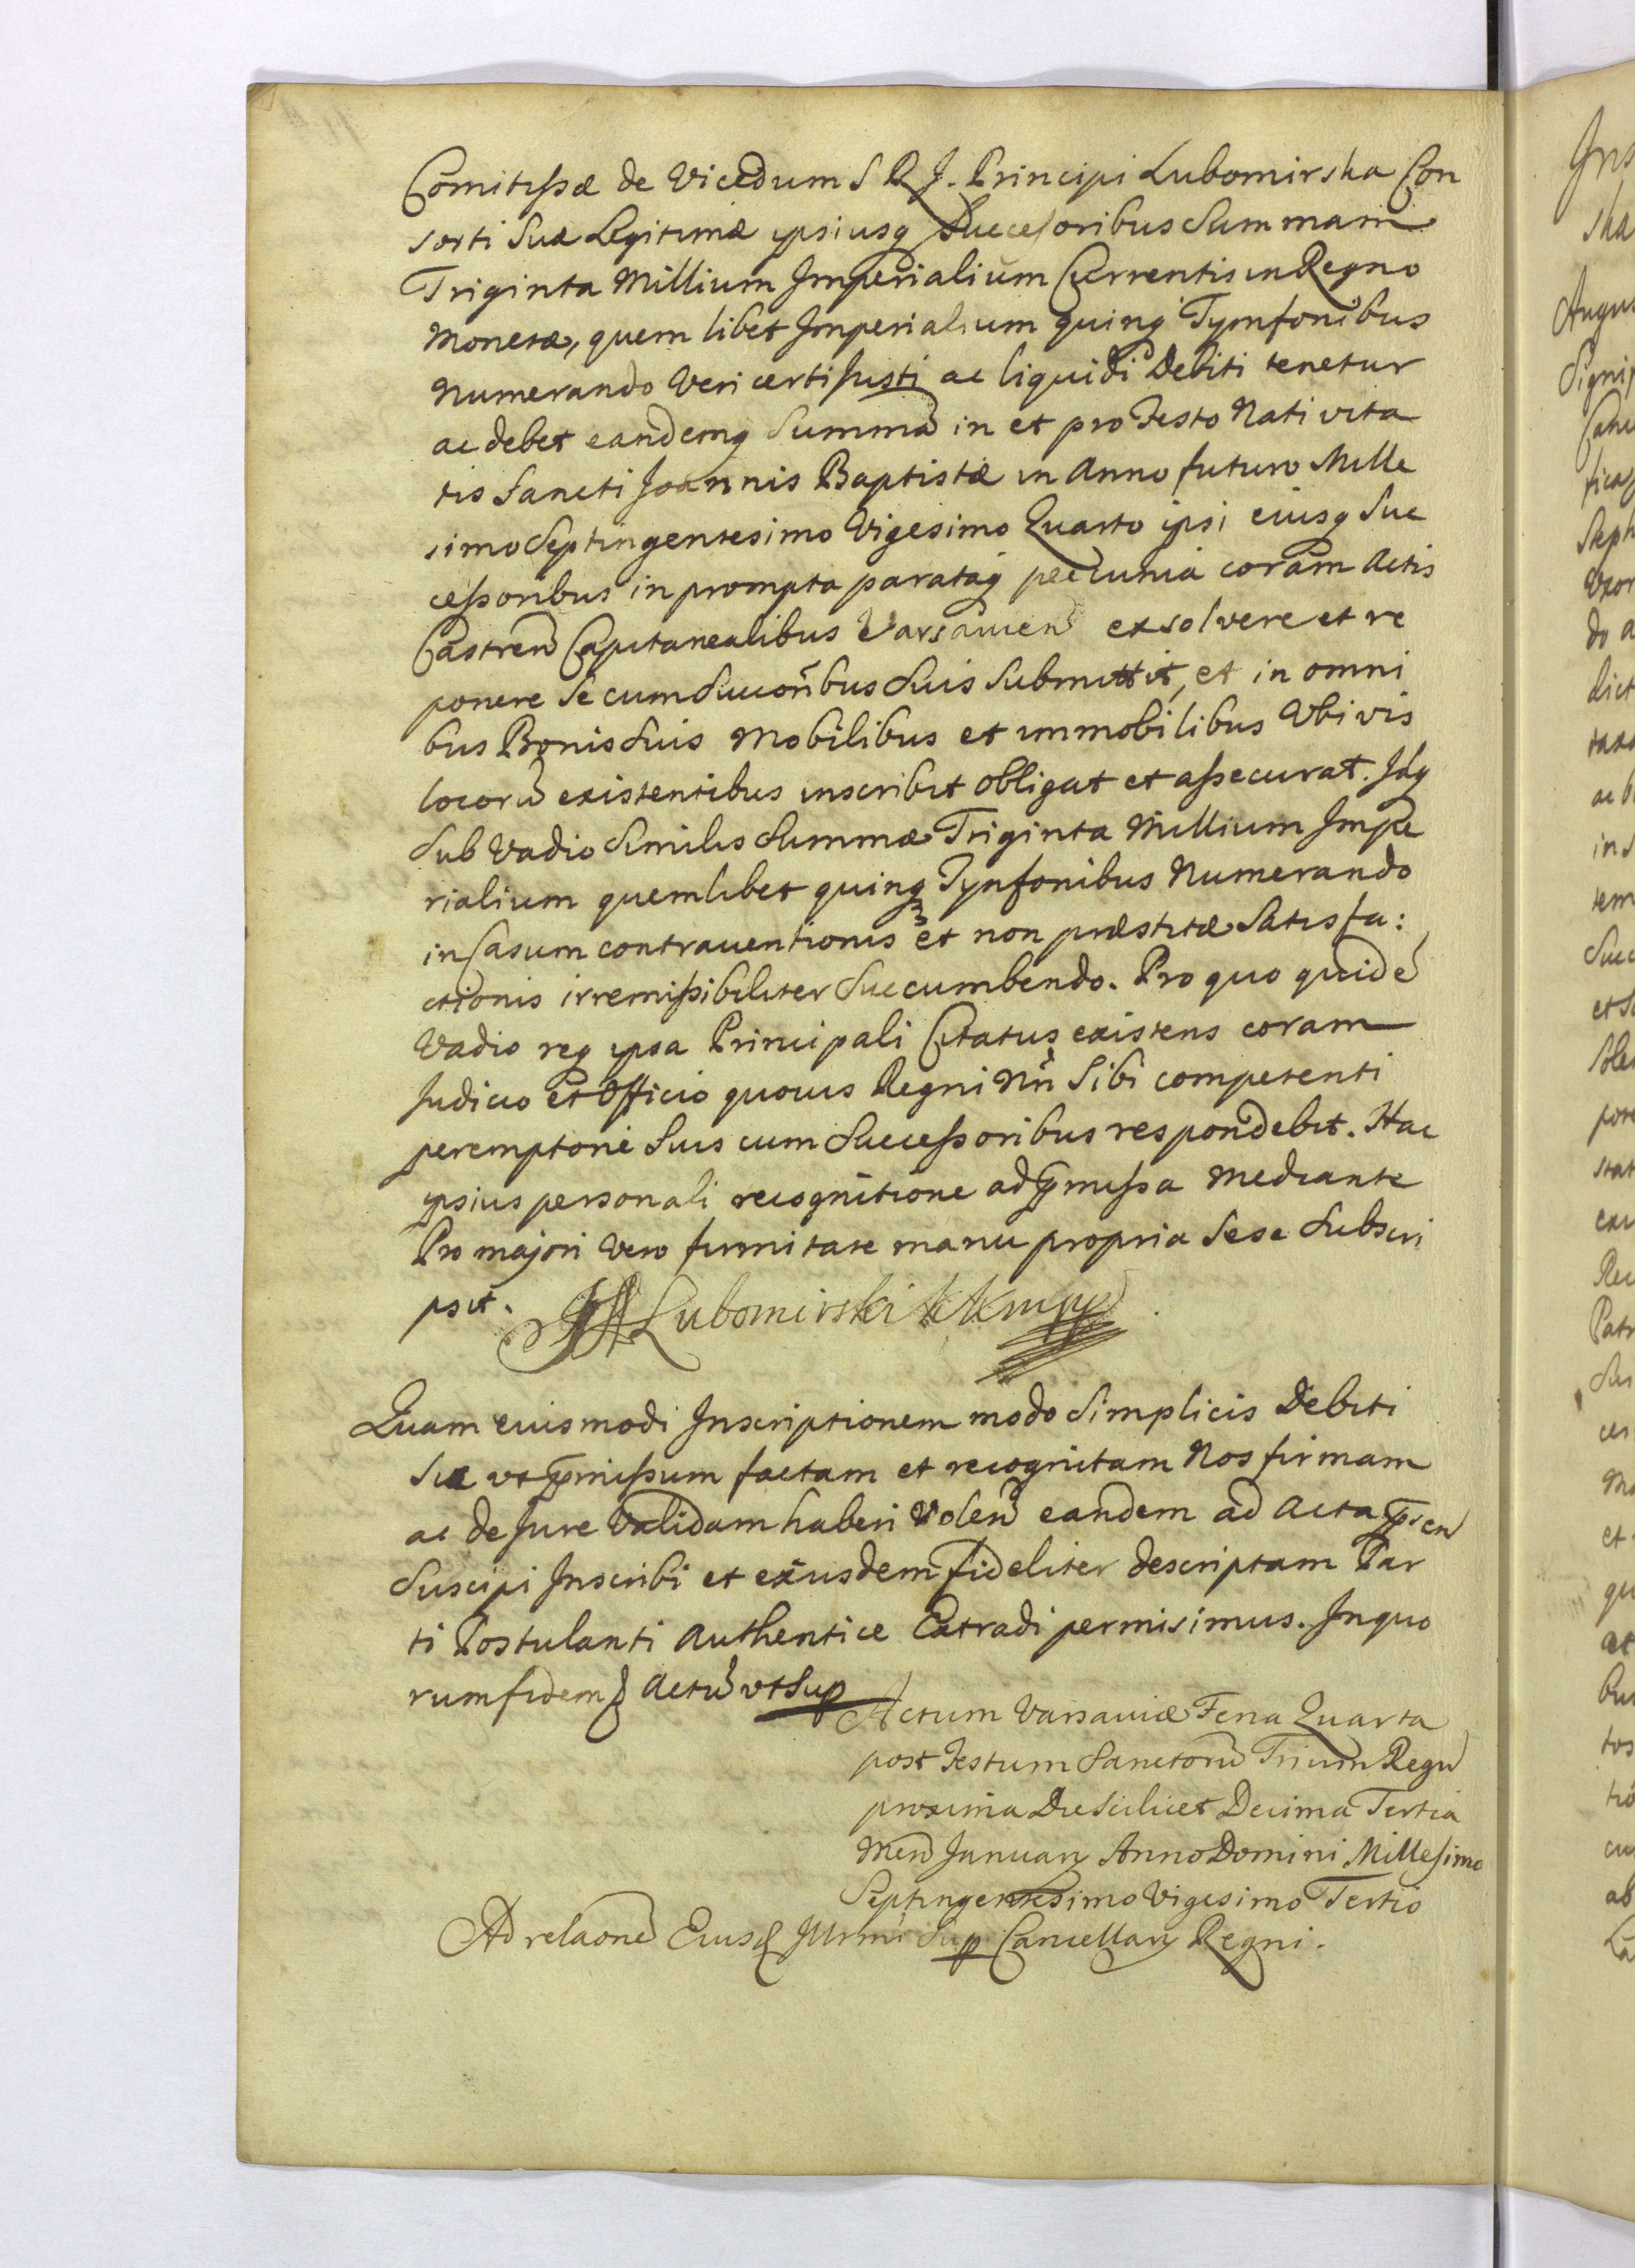 Comitissæ de Vicedum S R J. Principi Lubomirska Con
sorti Suæ Legitimæ ipsiusq Successoribus Summam
Triginta Millium Imperialium Currentis in Regno
Monetæ, quem libet Imperialium quinq Tymfonibus
Numerando Veri certi justi ac liquidi Debiti tenetur
ac debet eandemq Summã in et pro Festo Nativita
tis Sancti Joannis Baptistæ in Anno futuro Mille
simo Septingentesimo Vigesimo Quarto ipsi eiusq Suc
cessoribus in prompta parataq pecunia coram Actis
Castren Capitanealibus Varsavien exsolvere et re
ponere Se cum Succoribus Suis Submittit, et in omni
bus Bonis Suis Mobilibus et immobilibus Vbivis
locorũ existentibus inscribit obligat et assecurat. Idq
Sub Vadio Similis Summæ Triginta Millium Impe
rialium quemlibet quinq Tynfonibus Numerando
in Casum contraventionis et non præstitæ Satisfa:
ctionis irremissibiliter Succumbendo. Pro quo quidẽ
Vadio req ipsa Principali Citatus existens coram
Judicio et Officio quovis Regni Nri Sibi competenti
peremptorie Suis cum Successoribus respondebit. Hac
ipsius personali recognitione ad pmissa Mediante
Pro majori Vero firmitate manu propria Sese Subscri
psit. Lubomirski
Quam eiusmodi Inscriptionem modo Simplicis Debiti
Sic vt pmissum factam et recognitam Nos firmam
ac de Jure Validam haberi Volen eandem ad Acta psen
Suscipi Inscribi et eiusdem fideliter descriptam Par
ti Postulanti Authentice Extradi permisimus. In quo
rum fidem Actũ vt Sup
Actum Varsaviæ Feria Quarta
post Festum Sanctorũ Trium Regũ
proxima Die Scilicet Decima Tertia
Men Januarij Anno Domini Millesimo
Septingentesimo Vigesimo Tertio
Ad relaonẽ Eiusd Illrmi Sup Cancellarij Regni.